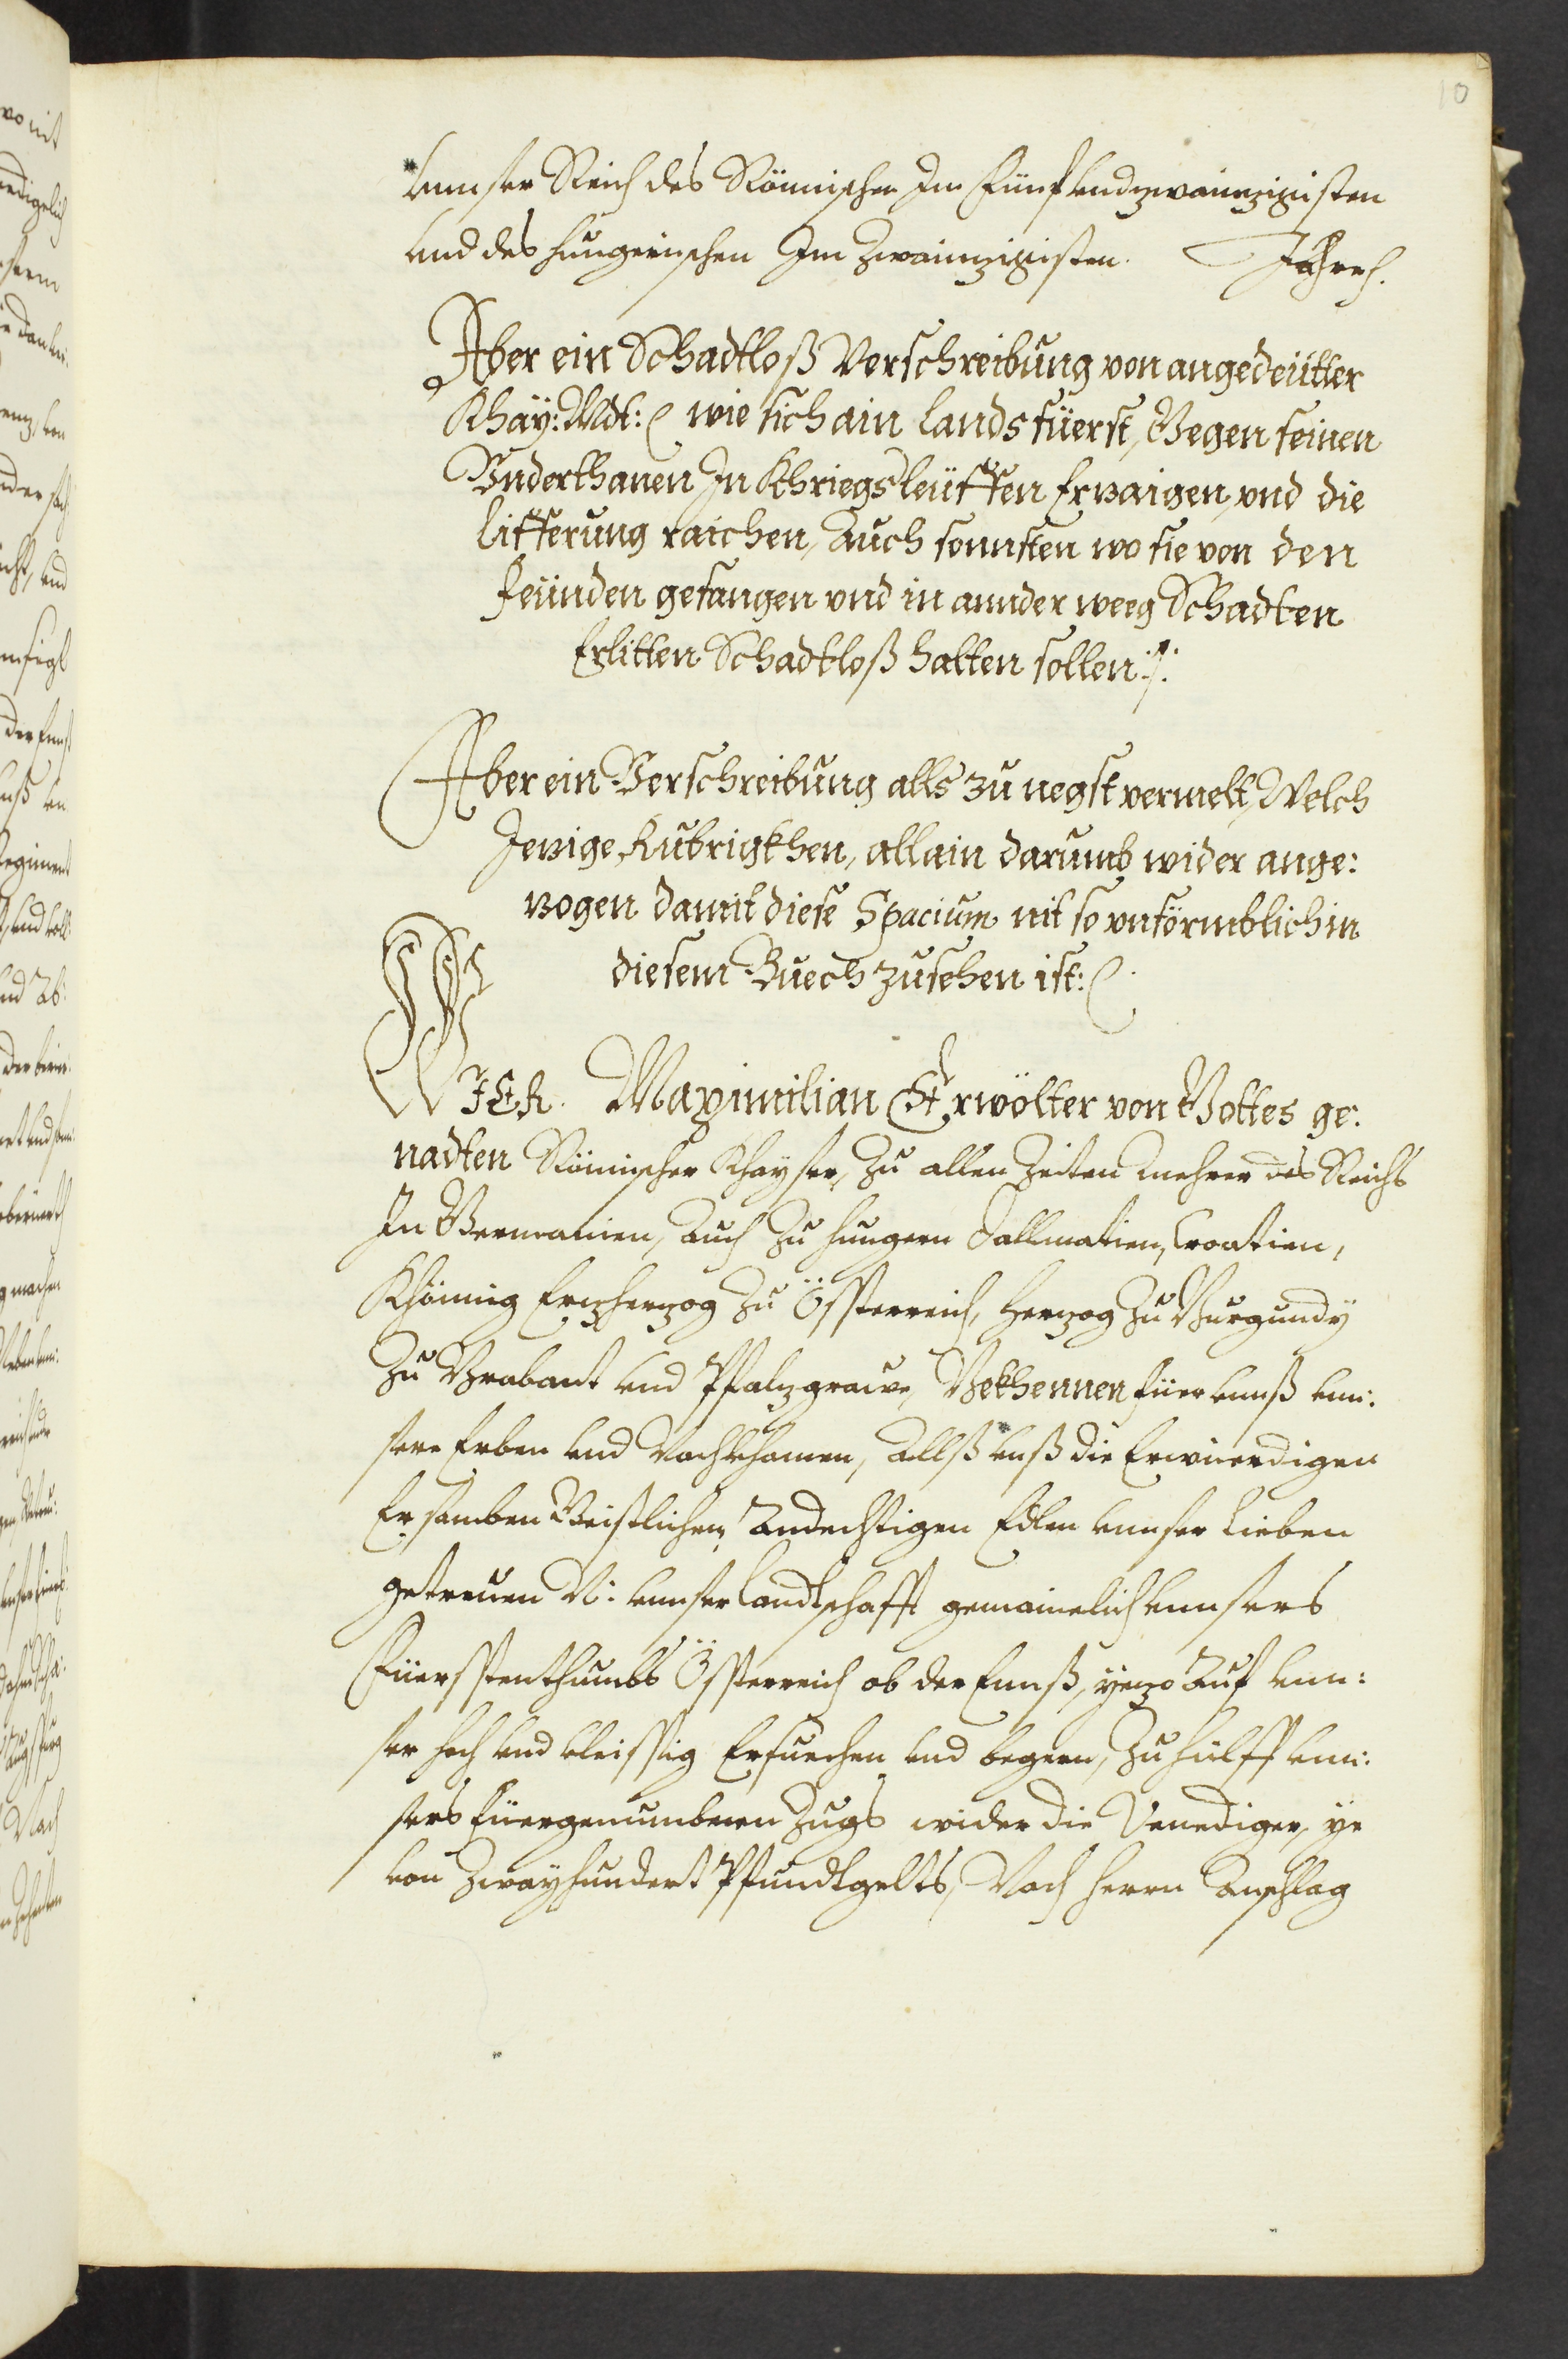 10
vnnser Reich des Römischen Im Fünfvndzwainzigisten
vnd des hungerischen Im Zwainzigisten. Jahren.
Aber ein Schadtloß Verschreibung von angedeütter
Khaÿ: Mdt: wie sich ain landsfüerst, Gegen seinen
Vnderthanen In Khriegsleüfften Erzaigen, vnd die
lifferung raichen, Auch sonnsten wo sie von den
Feünden gefangen vnd in annder weeg Schadten
Erlitten Schadtloß halten sollen:/:
Aber ein Verschreibung alls zu negst vermelt, Welch
Jezige Rubrigkhen, allain darumb wider ange:
zogen damit diese Spacium nit so vnförmblich in
diesem Buech zusehen ist:
WIER Maximilian Erwölter von Gottes ge:
nadten Römischer Khayser, Zu allen Zeiten mehrer des Reichs
In Germanien, Auch Zu hungern Dallmatien, Croatien,
Khönnig Erzherzog Zu Össterreich, Herzog Zu Burgundÿ
Zu Brabant vnd Pfalzgraive, Bekhennen füer vnnß vnn:
sere Erben vnd Nachkhomen, Allß vnß die Erwierdigen
Ersamben Geistlichen, Andechtigen Edlen vnnser Lieben
getreuen N: vnnser Landtschafft gemainelich vnnsers
Füersstenthumbs Össterreich ob der Ennß, yezo Auf vnn:
ser hoch vnd vleissig Ersuechen vnd begern, Zu hülff vnn:
sers Füergenumbnen Zugs wider die Venediger, ye
von Zwayhundert Pfundtgelts, Nach Herrn Anschlag